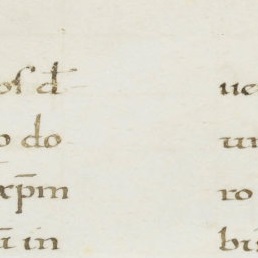 os d̅
o do
xp̅m
ū in
ue
un
ro
bi